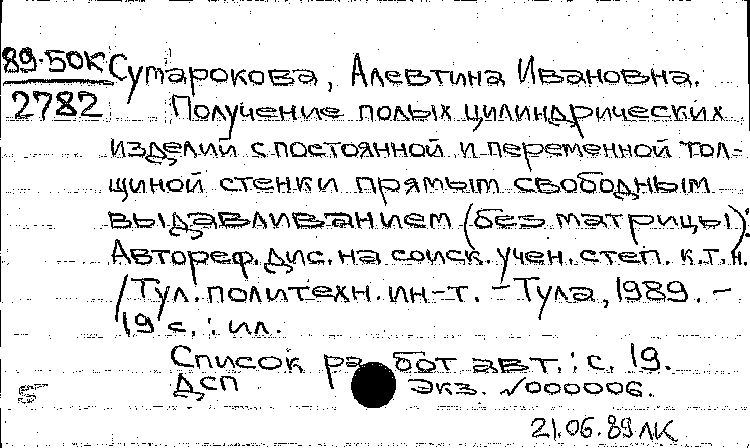 89-50К
2782
Сутарокова, Алевтина Ивановна.
Получение полых цилиндрических
изделий с постоянной и переменной тол-
щиной стенки прямым свободным
выдавливанием (без матрицы):
Автореф. дис. на соиск. учен. степ. к.т.н.
/Тул. политехн. ин-т. - Тула, 1989. -
19 с. : ил.
Список работ авт.: с. 19.
ДСП Экз. №000006.
5
21.06.89 ЛК